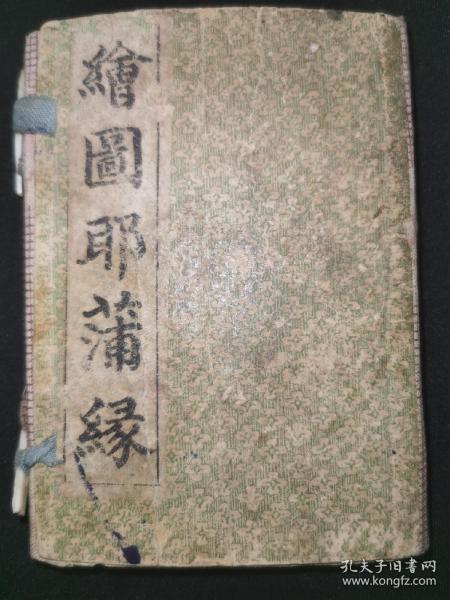 繪圖耶蒲緣
孔夫子旧书网
www.kongfz.com